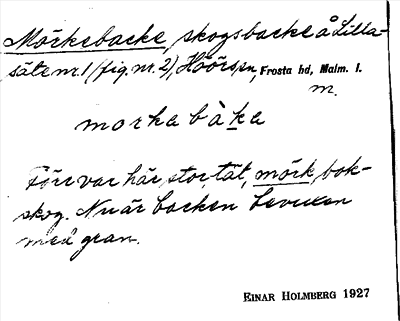 Mörkebacke, skogsbacke å Lilla-
säte nr. 1 (fig. nr. 2), Höörs sn, Frosta hd, Malm. l.
m.
morka bàka
Förr var här stor, tät, mörk bok-
skog. Nu är backen bevuxen
med gran.
EINAR HOLMBERG 1927